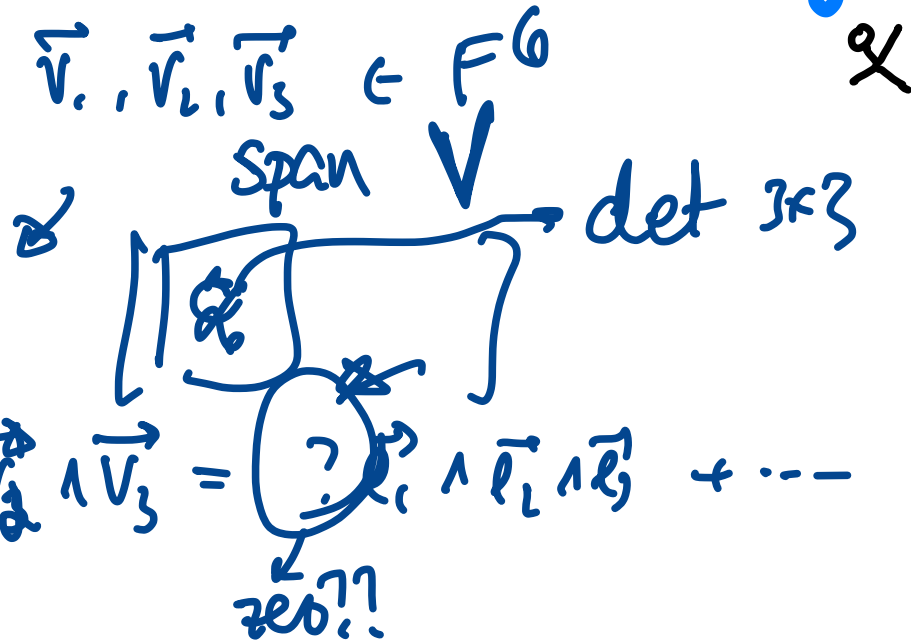 v₁, v₂, v₃ ∈ F⁶
span V
det 3×3
∧ v₃ = ? e₁ ∧ e₂ ∧ e₃ + ...
zero??